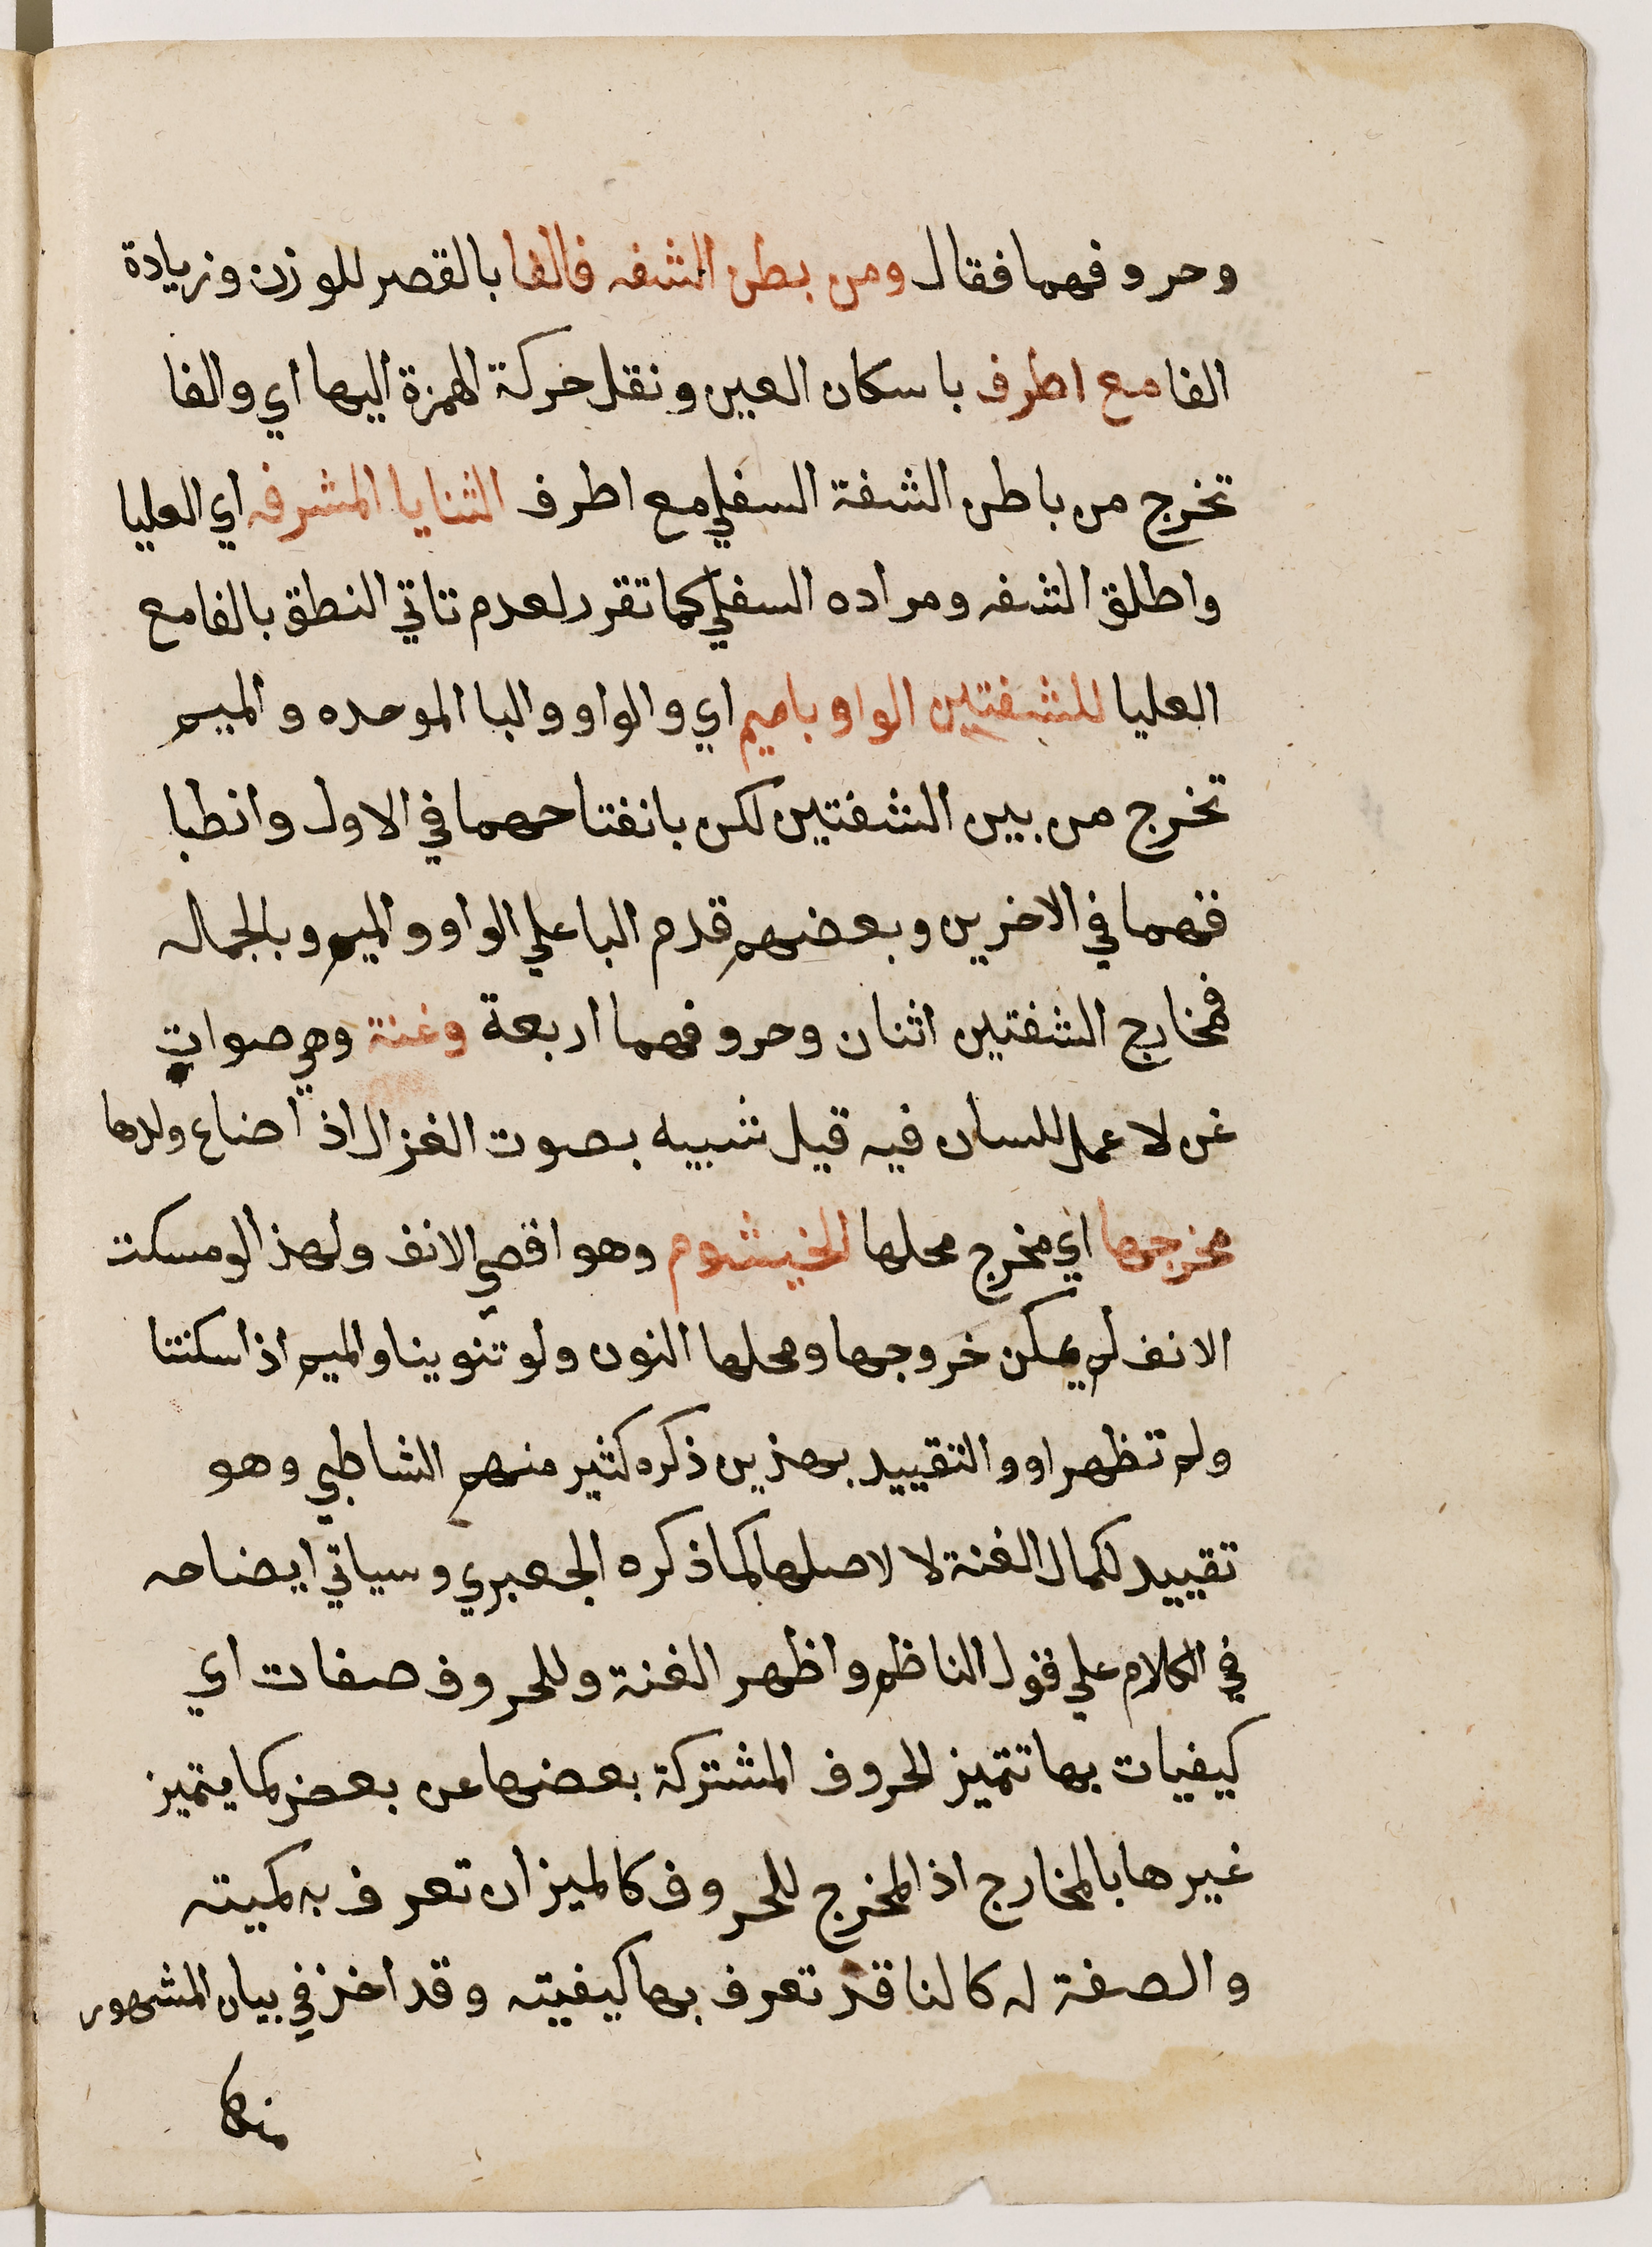 وحروفهما فقال ومن بطن الشفه فالفا بالقصر للوزن وزيادة
الفا مع اطرف باسكان العين ونقل حركة الهمزة اليها اي والفا
تخرج من باطن الشفة السفلي مع اطرف الثنايا المشرفه اي العليا
واطلق الشفه ومراده السفلي كما تقرر لعدم تاتي النطق بالفا مع
العليا للشفتين الواو باميم اي والواو والبا الموحده والميم
تخرج من بين الشفتين لكن بانفتاحهما في الاول وانطبا
قهما في الاخرين وبعضهم قدم البا علي الواو والميم وبالجماله
فمخارج الشفتين اثنان وحروفهما اربعة وغنة وهي صوات
غن لا عمل للسان فيه قيل شبيه بصوت الغزال اذ اضاع ولدها
مخرجها اي مخرج محلها الخيشوم وهو اقصي الانف ولهذا لو مسكت
الانف لم يمكن خروجها ومحلها النون ولو تنوينا والميم اذ اسكنتا
ولم تظهر او والتقييد بهذين ذكره كثير منهم الشاطبي وهو
تقييد لكمال الغنة لا لاصلها كما ذكره الجعبري وسياتي ايضاحه
في الكلام علي قول الناظم واظهر الغنة وللحروف صفات اي
كيفيات بها تتميز الحروف المشتركة بعضها عن بعض كما يتميز
غيرها بالمخارج اذ المخرج للحروف كالميزان تعرف به كميته
والصفة له كالناقد تعرف بها كيفيته وقد اخذ في بيان المشهور